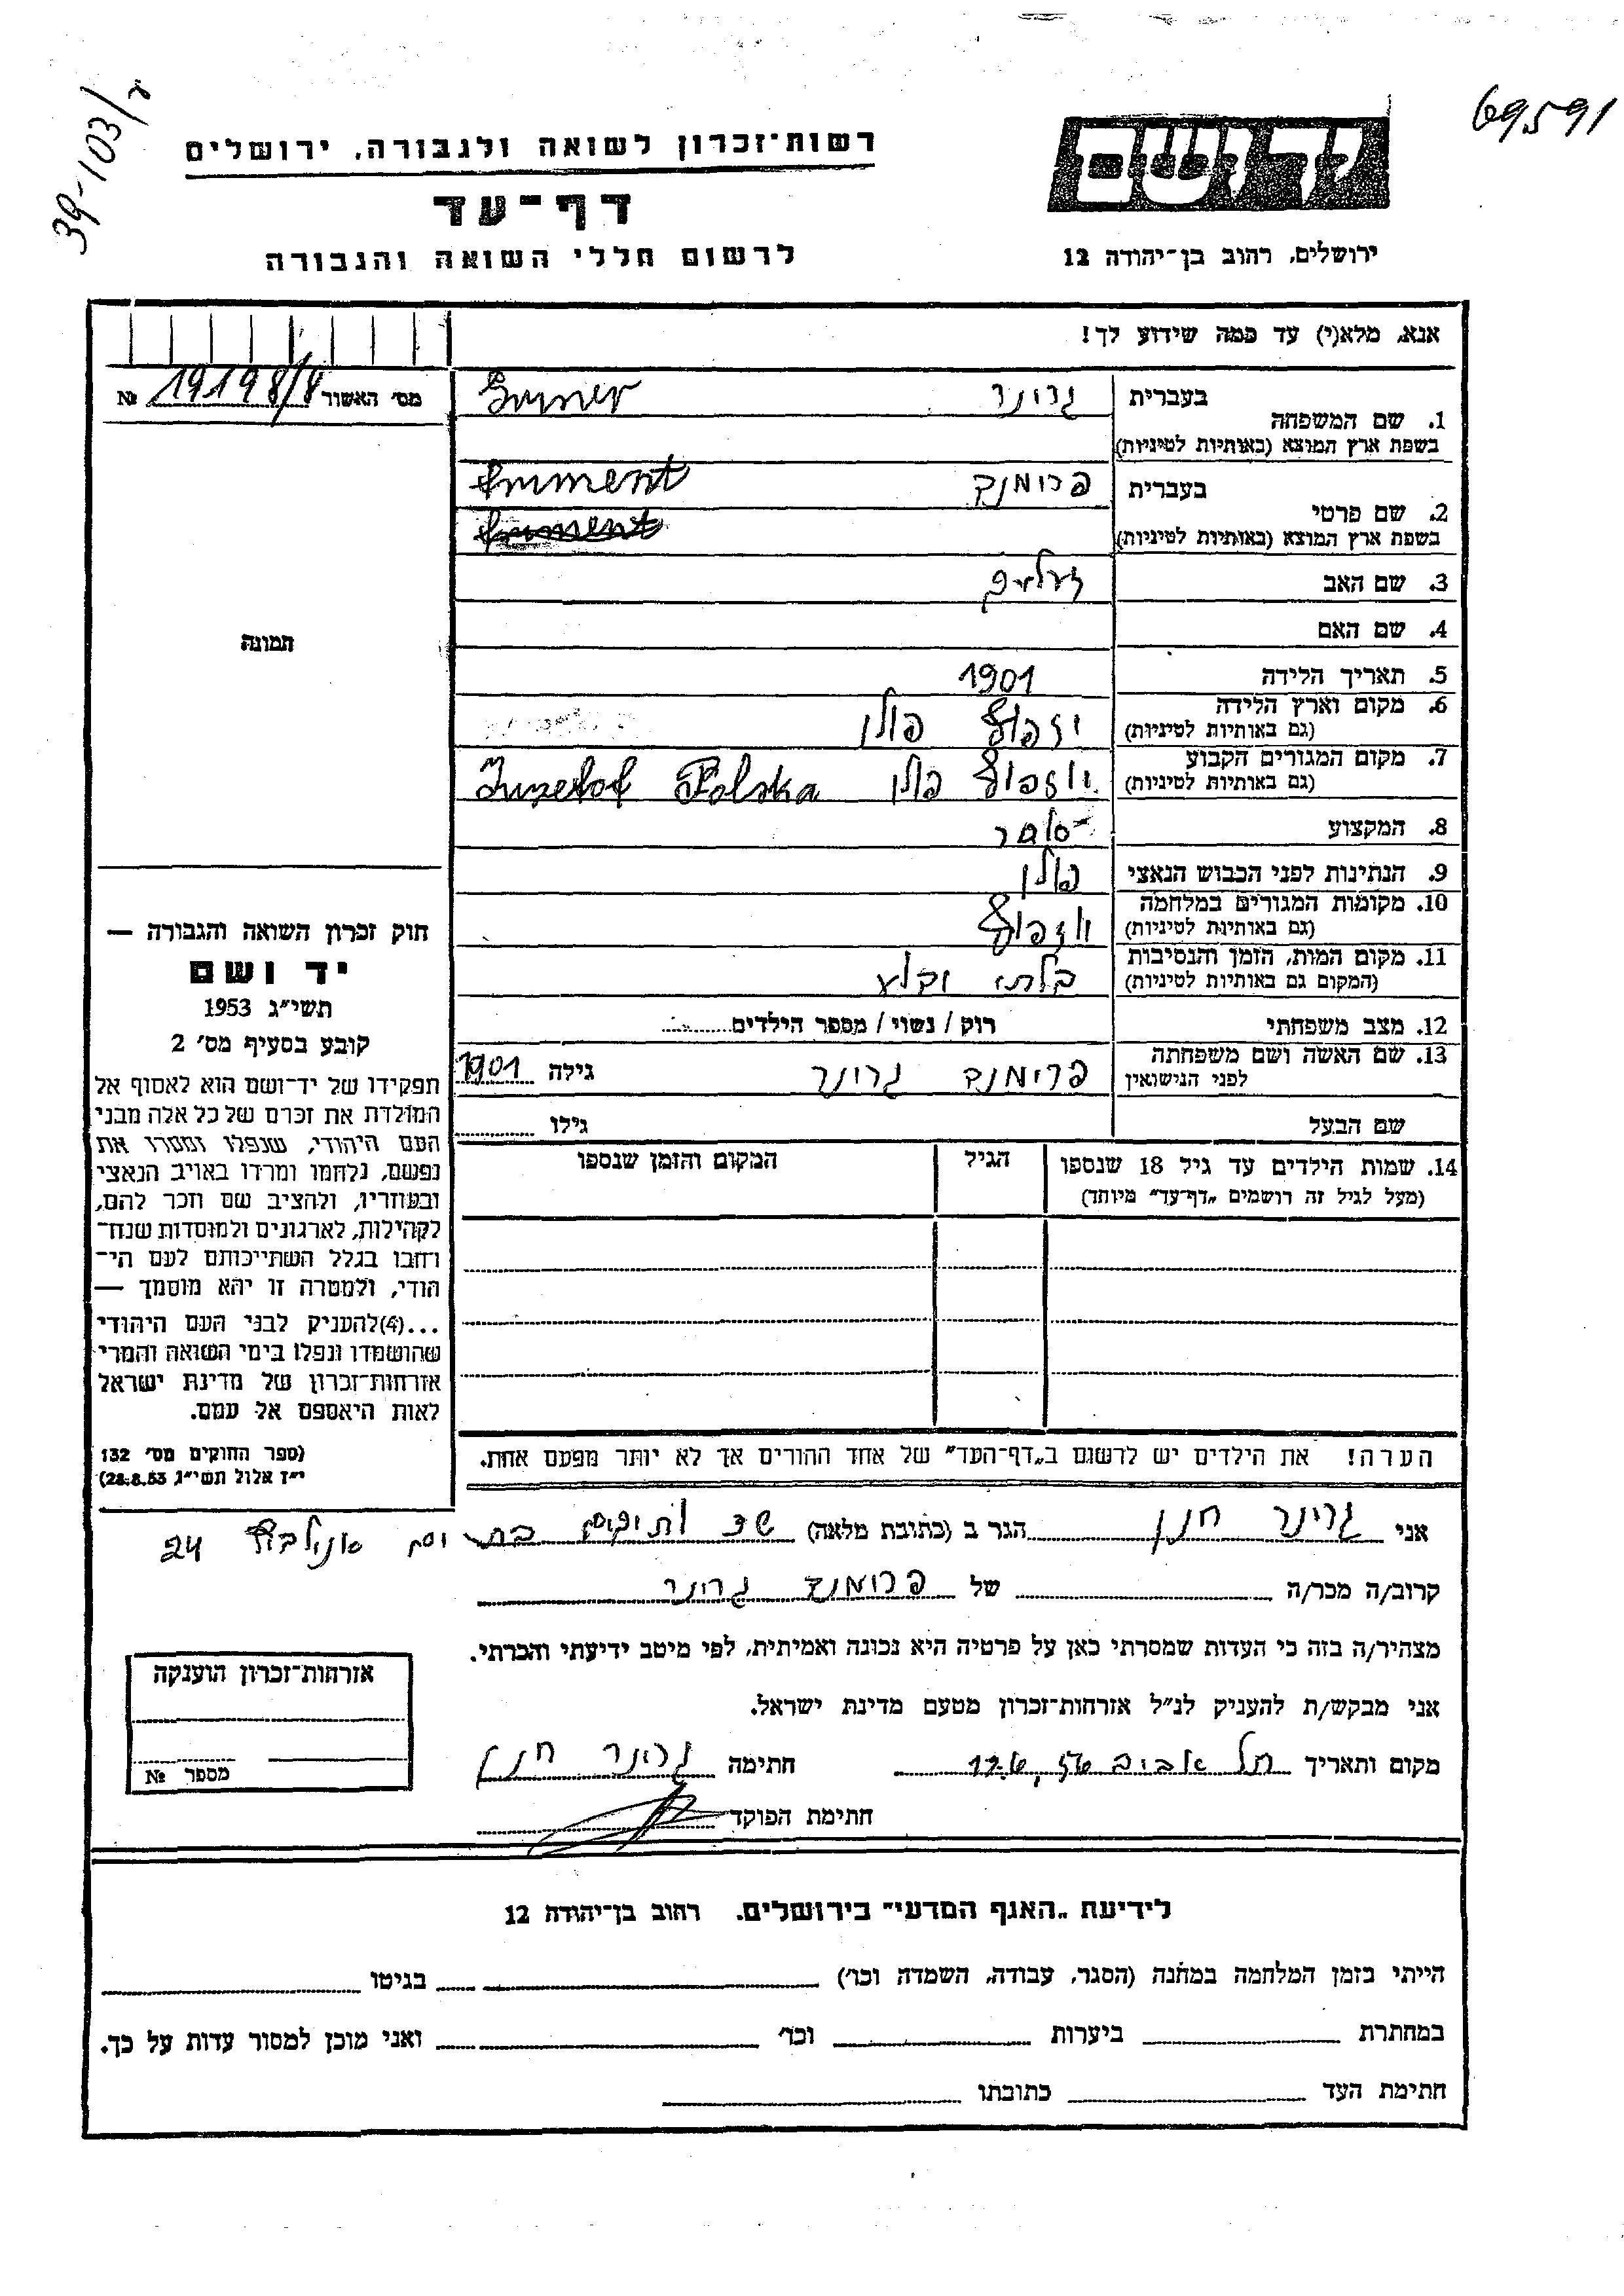 69591
39-103/ר
ידושם
ירושלים, רחוב בן־יהודה 12
רשות־זכרון לשואה ולגבורה, ירושלים
דף־עד
לרשום חללי השואה והגבורה
אנא, מלא(י) עד כמה שידוע לך!
מס׳ האשור 19198/8 №
1. שם המשפחה
בעברית גרינר
בשפת ארץ המוצא (באותיות לטיניות)
2. שם פרטי
בעברית פרומנד
בשפת ארץ המוצא (באותיות לטיניות)
3. שם האב
4. שם האם
5. תאריך הלידה 1901
6. מקום וארץ הלידה יזפוף פולין
(גם באותיות לטיניות)
7. מקום המגורים הקבוע יוזפוף פולין Juzefof Polska
(גם באותיות לטיניות)
8. המקצוע סוחר
9. הנתינות לפני הכבוש הנאצי פולין
10. מקומות המגורים במלחמה יוזפוף
(גם באותיות לטיניות)
11. מקום המות, הזמן והנסיבות בלתי
(המקום גם באותיות לטיניות)
12. מצב משפחתי רוק / נשוי / מספר הילדים
13. שם האשה ושם משפחתה פרימנד גרינר גילה 1901
לפני הנישואין
שם הבעל גילו
14. שמות הילדים עד גיל 18 שנספו הגיל המקום והזמן שנספו
(מעל לגיל זה רושמים „דף־עד״ מיוחד)
הערה! את הילדים יש לרשום ב„דף־העד״ של אחד ההורים אך לא יותר מפעם אחת.
תמונה
חוק זכרון השואה והגבורה —
יד ושם
תשי״ג 1953
קובע בסעיף מס׳ 2
תפקידו של יד־ושם הוא לאסוף אל
המולדת את זכרם של כל אלה מבני
העם היהודי, שנפלו ומסרו את
נפשם, נלחמו ומרדו באויב הנאצי
ובעוזריו, ולהציב שם וזכר להם,
לקהילות, לארגונים ולמוסדות שנח־
רחבו בגלל השתייכותם לעם הי־
הודי, ולמטרה זו יהא מוסמך —
...(4)להעניק לבני העם היהודי
שהושמדו ונפלו בימי השואה והמרי
אזרחות־זכרון של מדינת ישראל
לאות היאספם אל עמם.
(ספר החוקים מס׳ 132
י״ז אלול תשי״ג, 28.8.53)
אני גרינר חנן הגר ב (כתובת מלאה) 24
קרוב/ה מכר/ה של פרומנד גרינר
מצהיר/ה בזה כי העדות שמסרתי כאן על פרטיה היא נכונה ואמיתית, לפי מיטב ידיעתי והכרתי.
אני מבקש/ת להעניק לנ״ל אזרחות־זכרון מטעם מדינת ישראל.
מקום ותאריך תל אביב חתימה גרינר חנן
חתימת הפוקד
אזרחות־זכרון הוענקה
מספר №
לידיעת „האגף המדעי״ בירושלים. רחוב בן־יהודה 12
הייתי בזמן המלחמה במחנה (הסגר, עבודה, השמדה וכו׳) בגיטו
במחתרת ביערות וכו׳ ואני מוכן למסור עדות על כך.
חתימת העד כתובתו